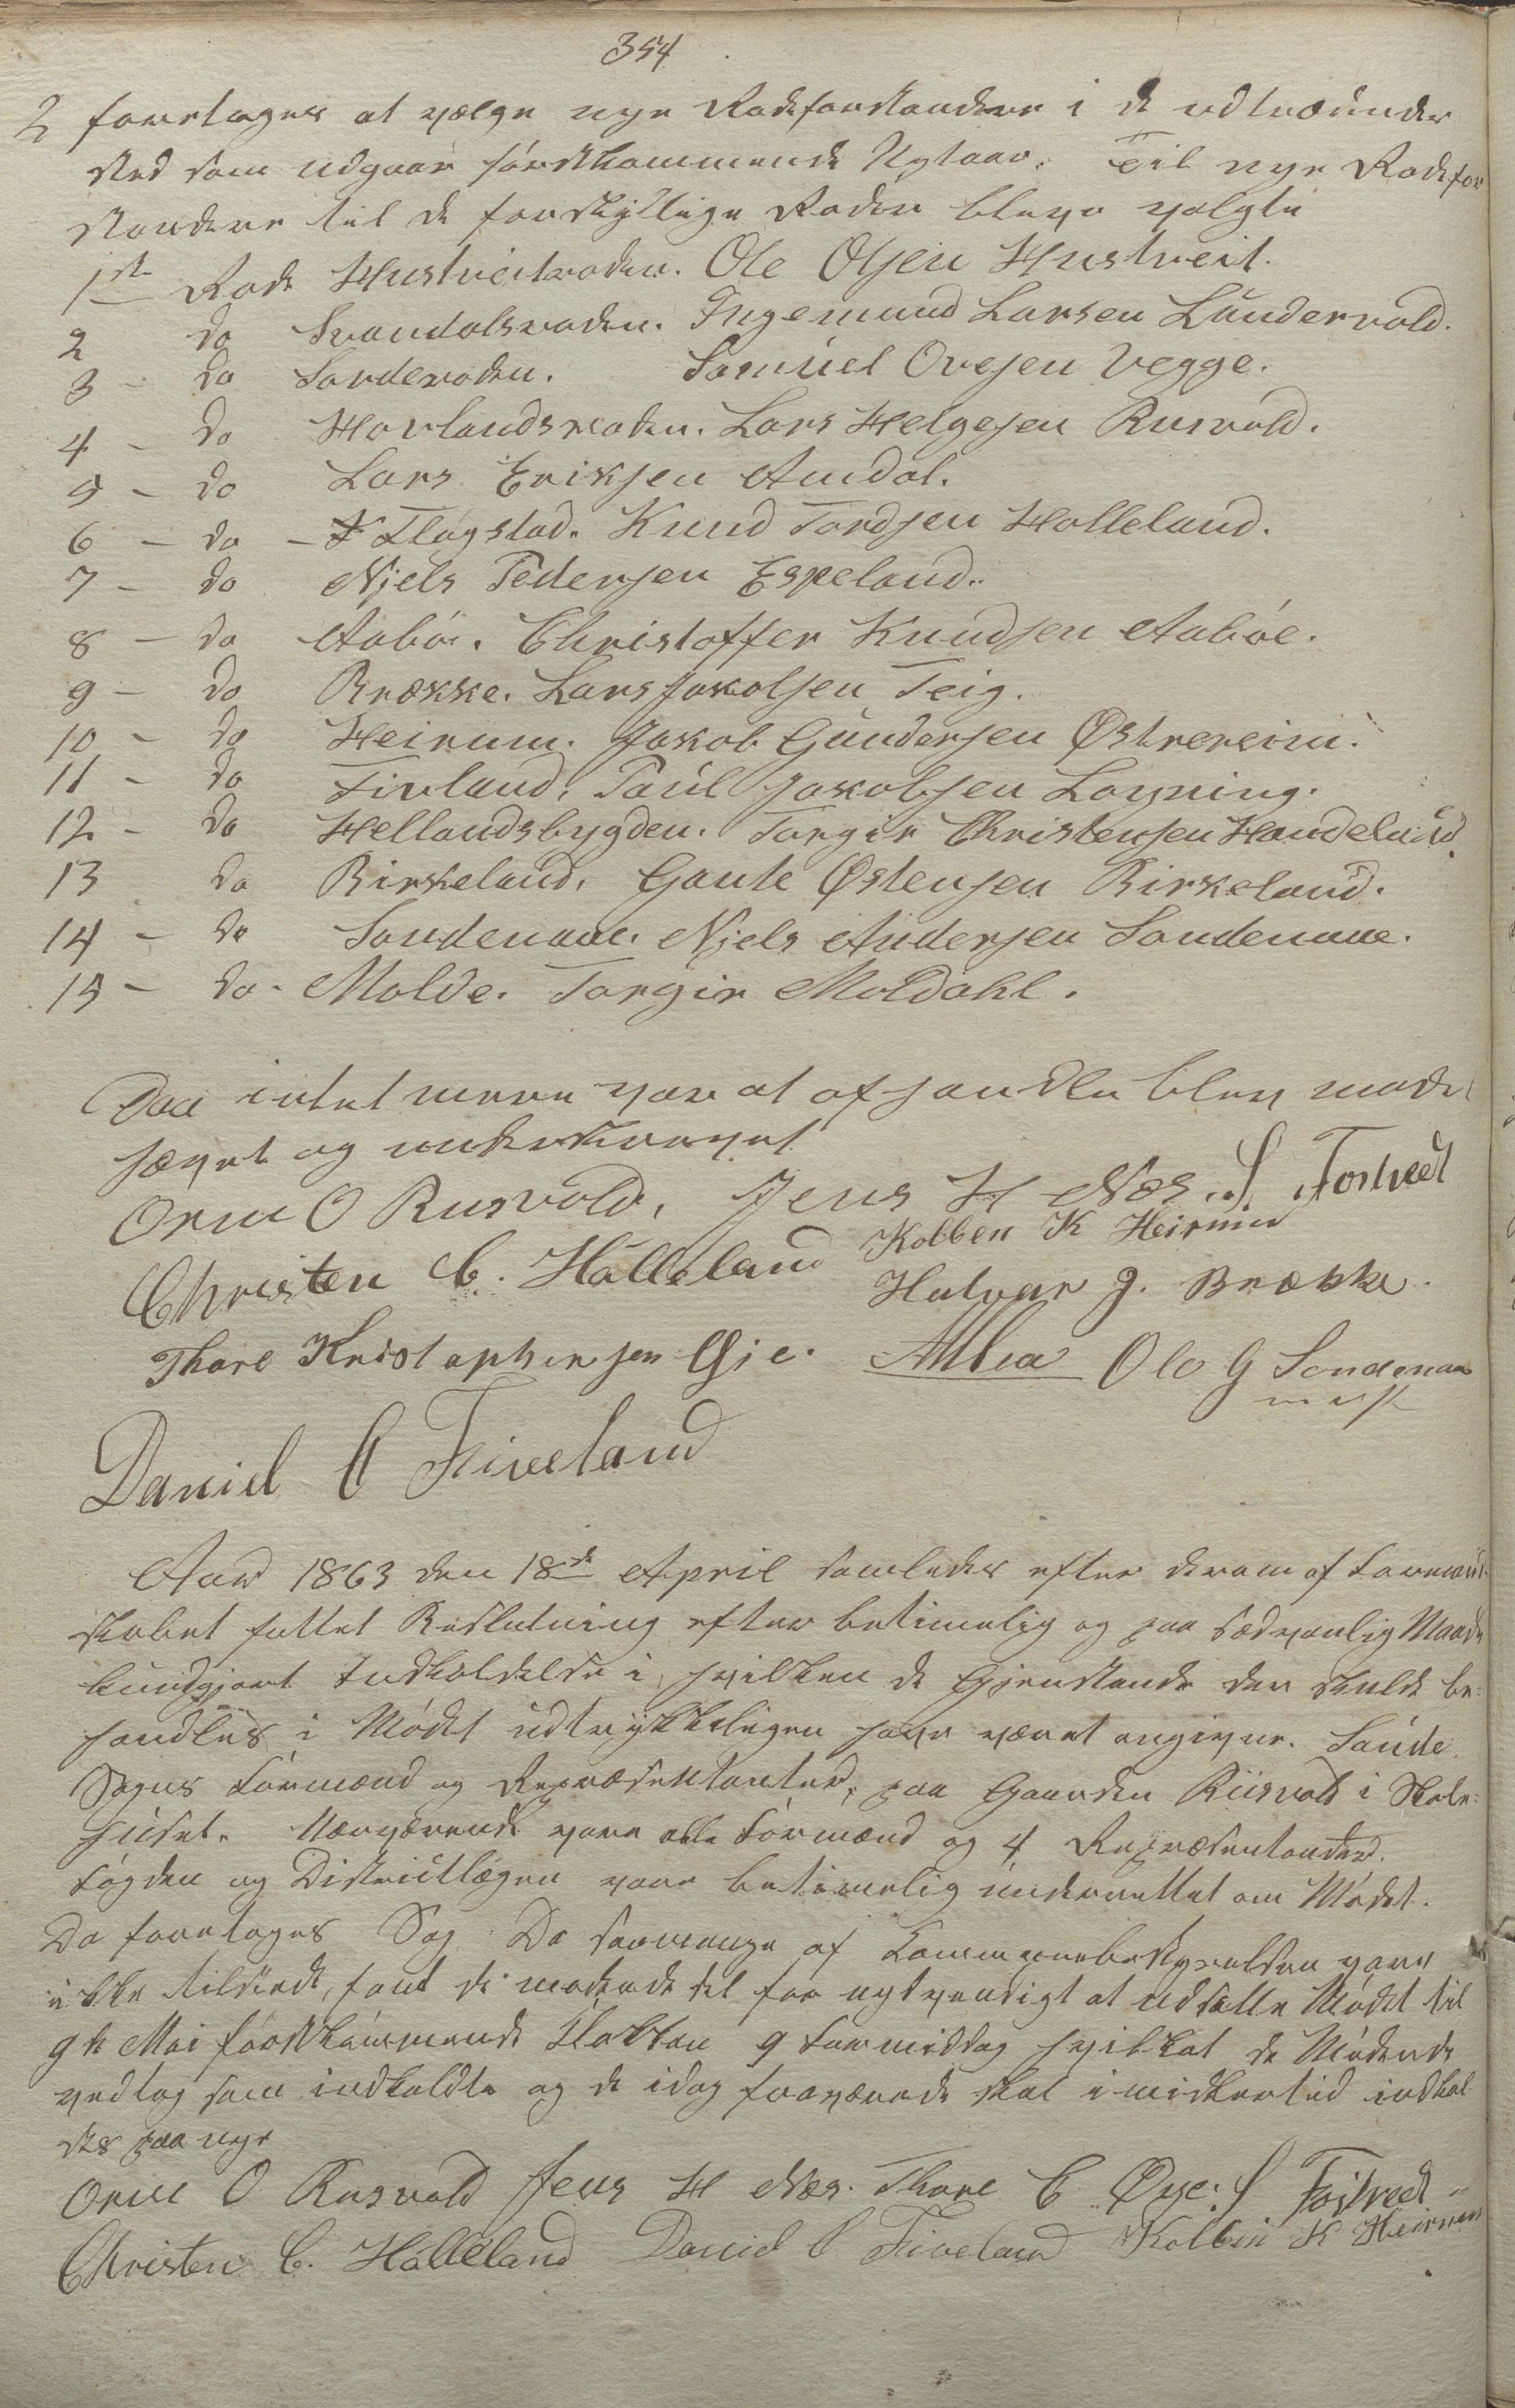 354
2 foretages at vælge nye Rodeforstandere i de udtrædendes
sted som udgaar førstkommende Nytaar. Til nye Rodefor
standere til de forskjellige Roder bleve valgte
1ste Rode Hustveitroden. Ole Olsen Hustveit.
2 do Svandalsroden. Ingemund Larsen Lundervold.
3 - do Sanderoden. Samuel Ovesen Vegge.
4 - do Hovlandsroden. Lars Helgesen Rusvold.
5 - do Lars Eriksen Amdal.
6 - do - Fløgstad. Knud Tordsen Halleland.
7 - do Njels Pedersen Espeland.
8 - do Aabø. Christoffer Knudsen Aabøe.
9 - do Brække. Lars Jakobsen Teig.
10 - do Heirum. Jakob Gundersen Østrereim.
11 - do Fivland. Paul Jakobsen Løyning.
12 - do Hellandsbygden. Torgir Christensen Handeland.
13 do Birkeland. Gaute Østensen Birkeland.
14 - do Sandenaae. Njels Andersen Sandenaae.
15 - do - Molde. Torgir Moldahl.
Daa intet mere var at afhandle blev mødet
hævet og underskrevet
Orm O Rusvold. Jens H Næs. S Fostvedt
Christen C. Hålleland Kolben K Heirum
Halvar J. Brække.
Thore Kristophersen Øie. Ole G Sandenaa
Daniel C Fiveland
Aar 1863 den 18de April samledes efter derom af Formand-
skabet fattet Beslutning efter betimelig og paa sædvanlig Maade
kundgjort Indkaldelse i hvilken de Gjenstande der skulde be-
handles i Mødet udtrykkeligen have været angivne. Saude
Sogns Formænd og Repræsentanter, paa Gaarden Riisvold i Skole-
huset. Nærværende vare alle Formænd og 4 Repræsentanter.
Fogden og Districtlægen vare betimelig underrettet om Mødet.
Da foretoges Sag Da saamange af Kommunebestyrelsen vare
ikke tilstede, fant de mødende det for nødvendigt at udsætte Mødet til
9de Mai førstkommende Klokken 9 Formiddag hvilket de Mødende
vedtog som indkaldte og de idag fraværende skal imidlertid indkal
des paa nye
Orm O Rusvold Jens H Næs. Thore C Øye. S Fostvedt
Christen C. Hålleland Daniel C Fiveland Kolben K Heirum